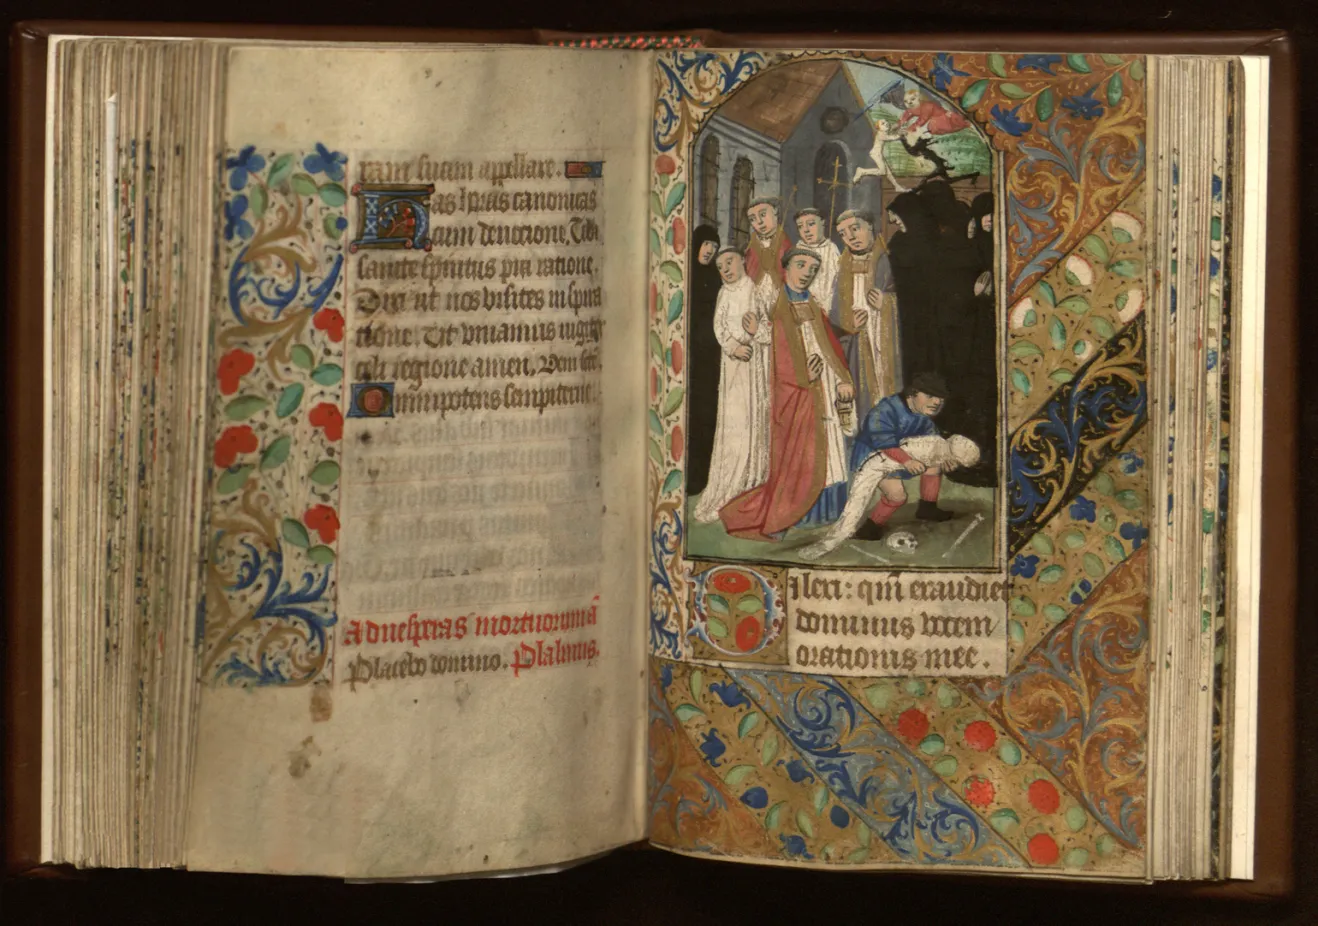 ram suam apellare.
Has horas canonicas
cum deuotione. Tibi
sancte spiritus pia ratione.
Dixi ut nos visites inspira
tione. Et viuamus iugiter
celi regione amen. Veni sce.
Omnipotens sempiterne.
Ad vesperas mortuorum añ
Placebo domino. Psalmus.
Dilexi: qm̃ exaudiet
dominus vocem
orationis mee.